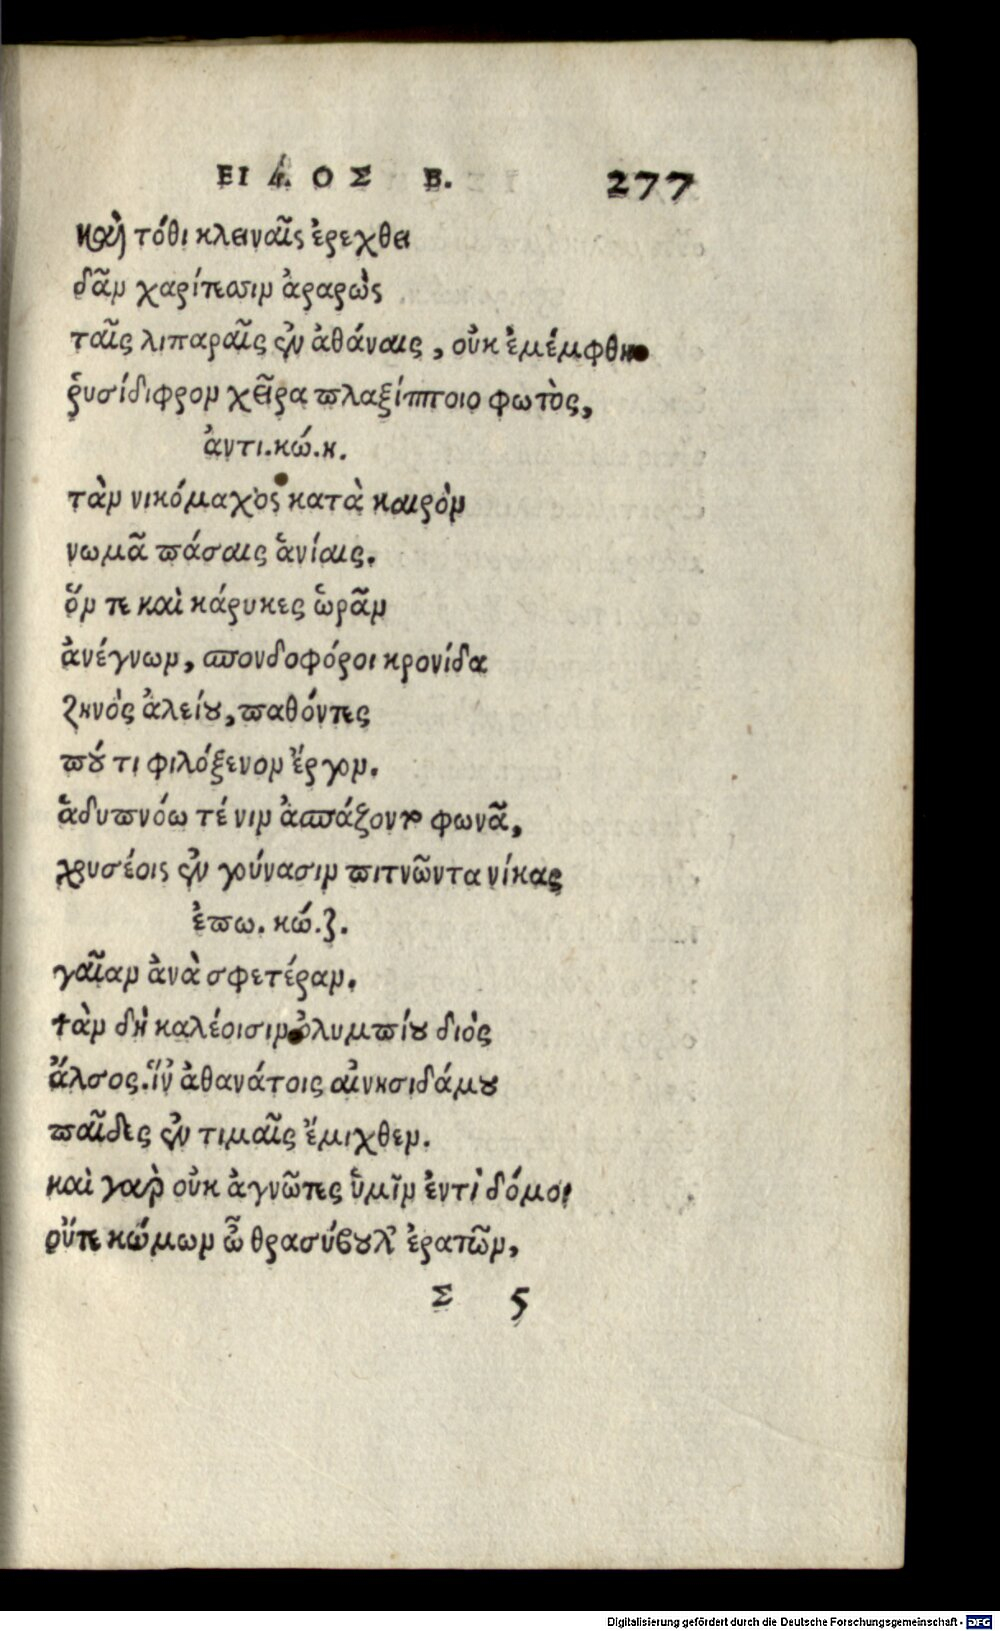 ΕΙΔΟΣ Β. 277
καὶ τόθι κλειναῖς ἐρεχθει
δᾶν χαρίτεσσιν ἀραρὼς
ταῖς λιπαραῖς ἐν ἀθάναις, οὐκ ἐμέμφθη
ῥυσίδιφρον χεῖρα πλαξίπποιο φωτὸς,
ἀντι. κώ. κ.
τὰν νικόμαχος κατὰ καιρὸν
νωμᾶ πάσαις ἁνίαις.
ὅν τε καὶ κάρυκες ὡρᾶν
ἀνέγνων, σπονδοφόροι κρονίδα
ζηνὸς ἀλείου, παθόντες
πού τι φιλόξενον ἔργον.
ἁδυπνόω τέ νιν ἀσπάζοντο φωνᾶ,
χρυσέοις ἐν γούνασιν πιτνῶντα νίκας
ἐπω. κώ. ζ.
γαῖαν ἀνὰ σφετέραν.
τὰν δὴ καλέοισιν ὀλυμπίου διὸς
ἄλσος. ἵν ἀθανάτοις αἰνησιδάμου
παῖδες ἐν τιμαῖς ἔμιχθεν.
καὶ γὰρ οὐκ ἀγνῶτες ὑμῖν ἐντὶ δόμοι
οὔτε κώμων ὦ θρασύβουλ' ἐρατῶν,
Σ 5
Digitalisierung gefördert durch die Deutsche Forschungsgemeinschaft - DFG